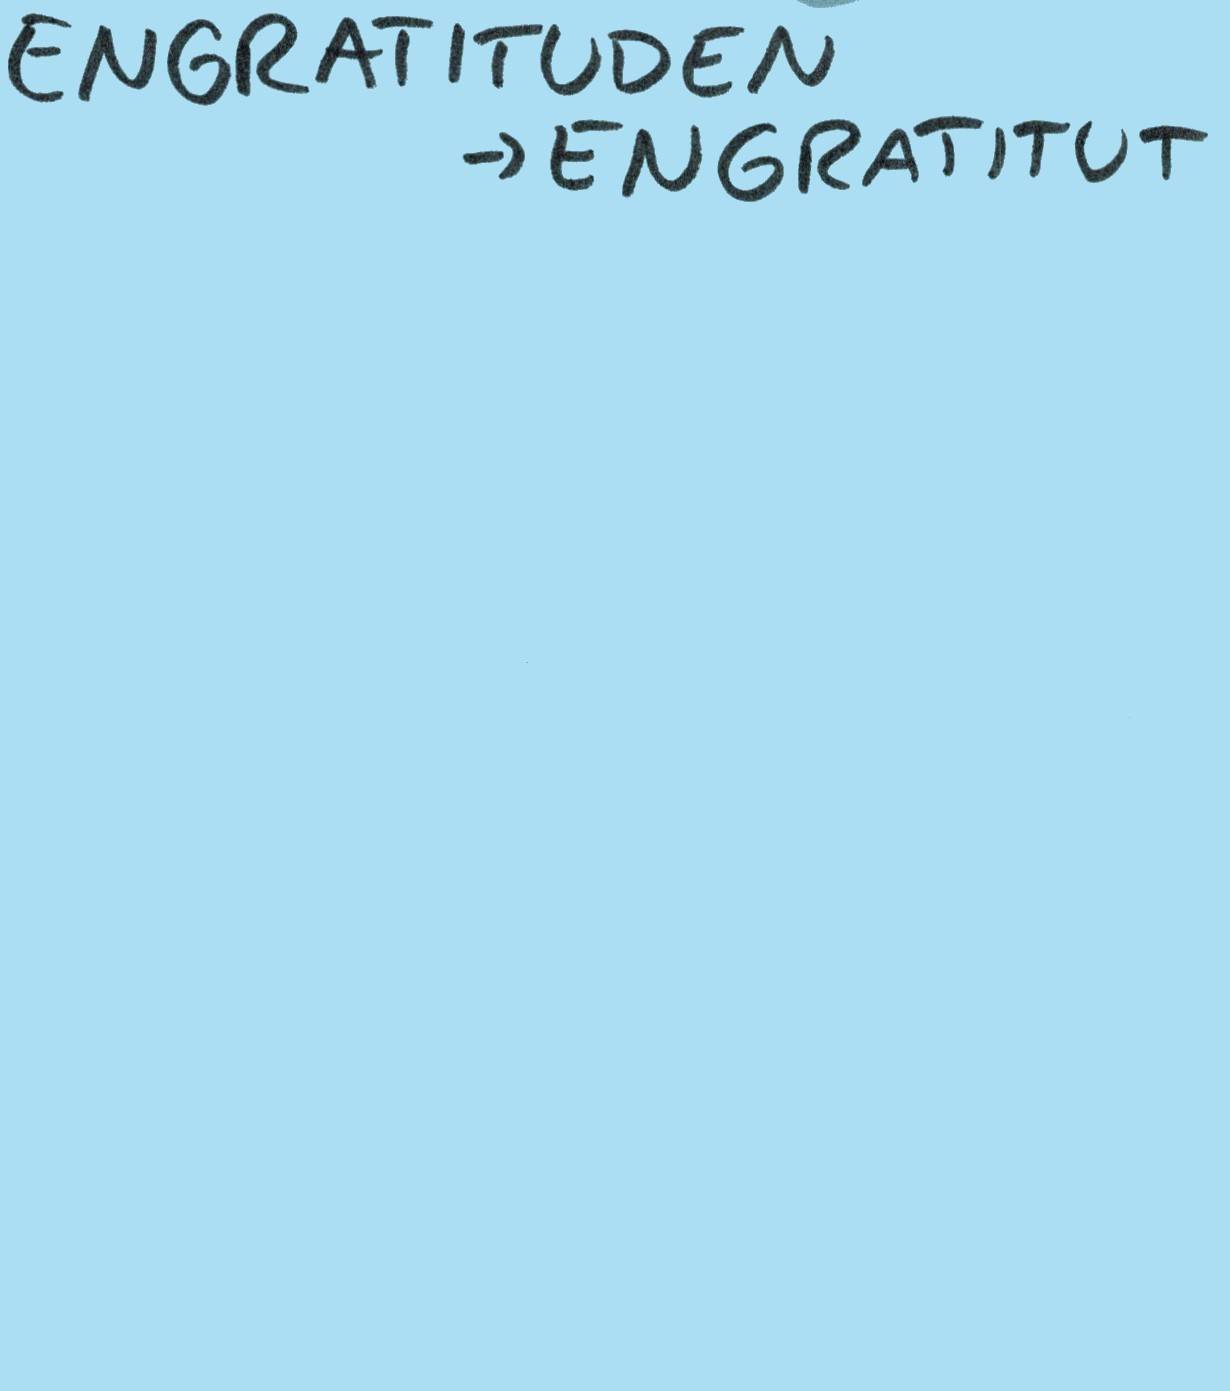 ENGRATITUDEN
→ENGRATITUT